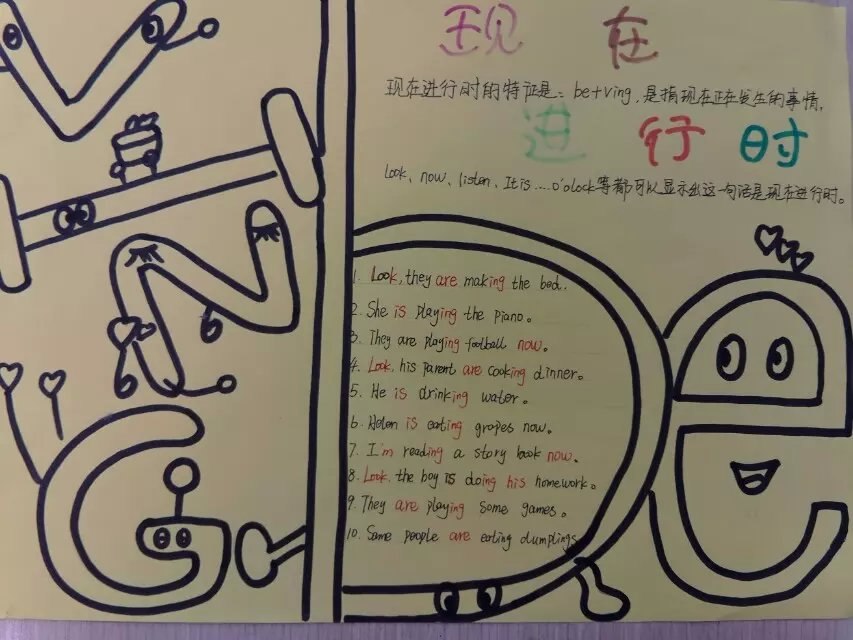 现在
现在进行时的特征是：be+ving，是指现在正在发生的事情，
进行时
look、now、listen、It is....o'olock等都可以显示出这一句话是现在进行时。
1. Look, they are making the bed.
2. She is playing the piano。
3. They are playing football now。
4. Look, his parent are cooking dinner。
5. He is drinking water。
6. Helen is eating grapes now。
7. I'm reading a story book now。
8. Look, the boy is doing his homework。
9. They are playing some games。
10. Some people are eating dumplings
V
I
N
G
be